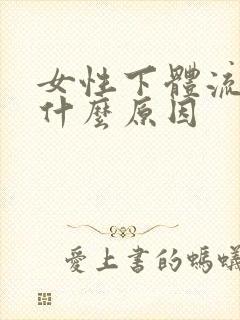 女性下體流
什麼原因
愛上書的螞蟻